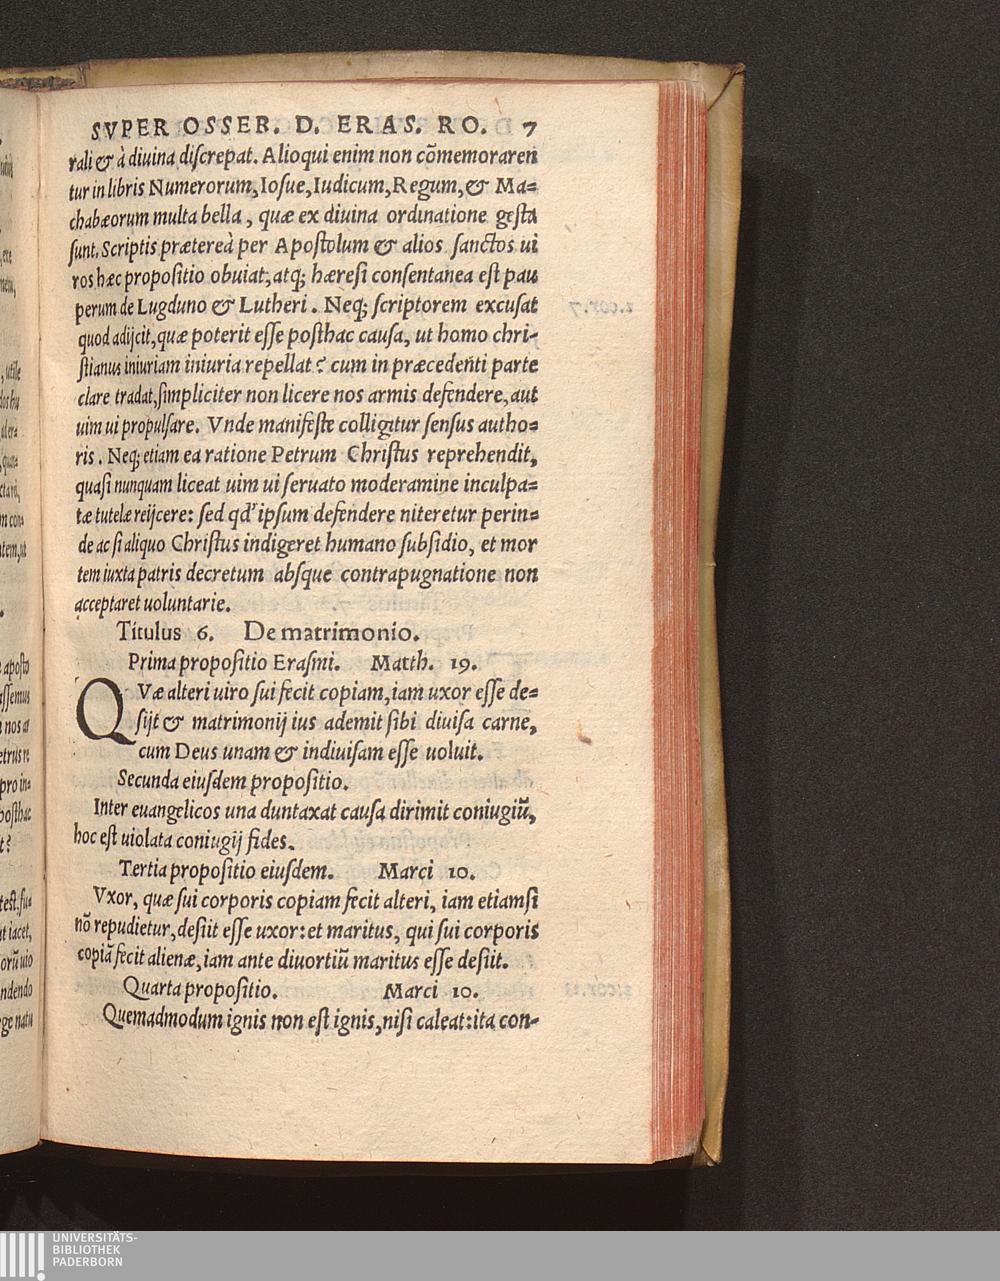 SVPER OSSER. D. ERAS. RO. 7
rali & à diuina discrepat. Alioqui enim non cōmemoraren
tur in libris Numerorum, Iosue, Iudicum, Regum, & Ma=
chabæorum multa bella, quæ ex diuina ordinatione gesta
sunt. Scriptis prætereà per Apostolum & alios sanctos ui
ros hæc propositio obuiat, atq; hæresi consentanea est pau
perum de Lugduno & Lutheri. Neq; scriptorem excusat
quod adijcit, quæ poterit esse posthac causa, ut homo chri-
stianus iniuriam iniuria repellat? cum in præcedenti parte
clare tradat, simpliciter non licere nos armis defendere, aut
uim ui propulsare. Vnde manifeste colligitur sensus autho=
ris. Neq; etiam ea ratione Petrum Christus reprehendit,
quasi nunquam liceat uim ui seruato moderamine inculpa=
tæ tutelæ reijcere: sed qd' ipsum defendere niteretur perin=
de ac si aliquo Christus indigeret humano subsidio, et mor
tem iuxta patris decretum absque contrapugnatione non
acceptaret uoluntarie.
Titulus 6. De matrimonio.
Prima propositio Erasmi. Matth. 19.
QVæ alteri uiro sui fecit copiam, iam uxor esse de=
sijt & matrimonij ius ademit sibi diuisa carne,
cum Deus unam & indiuisam esse uoluit.
Secunda eiusdem propositio.
Inter euangelicos una duntaxat causa dirimit coniugiū,
hoc est uiolata coniugij fides.
Tertia propositio eiusdem. Marci 10.
Vxor, quæ sui corporis copiam fecit alteri, iam etiamsi
nō repudietur, desiit esse uxor: et maritus, qui sui corporis
copiā fecit alienæ, iam ante diuortiū maritus esse desiit.
Quarta propositio. Marci 10.
Quemadmodum ignis non est ignis, nisi caleat: ita con-
UNIVERSITÄTS-
BIBLIOTHEK
PADERBORN